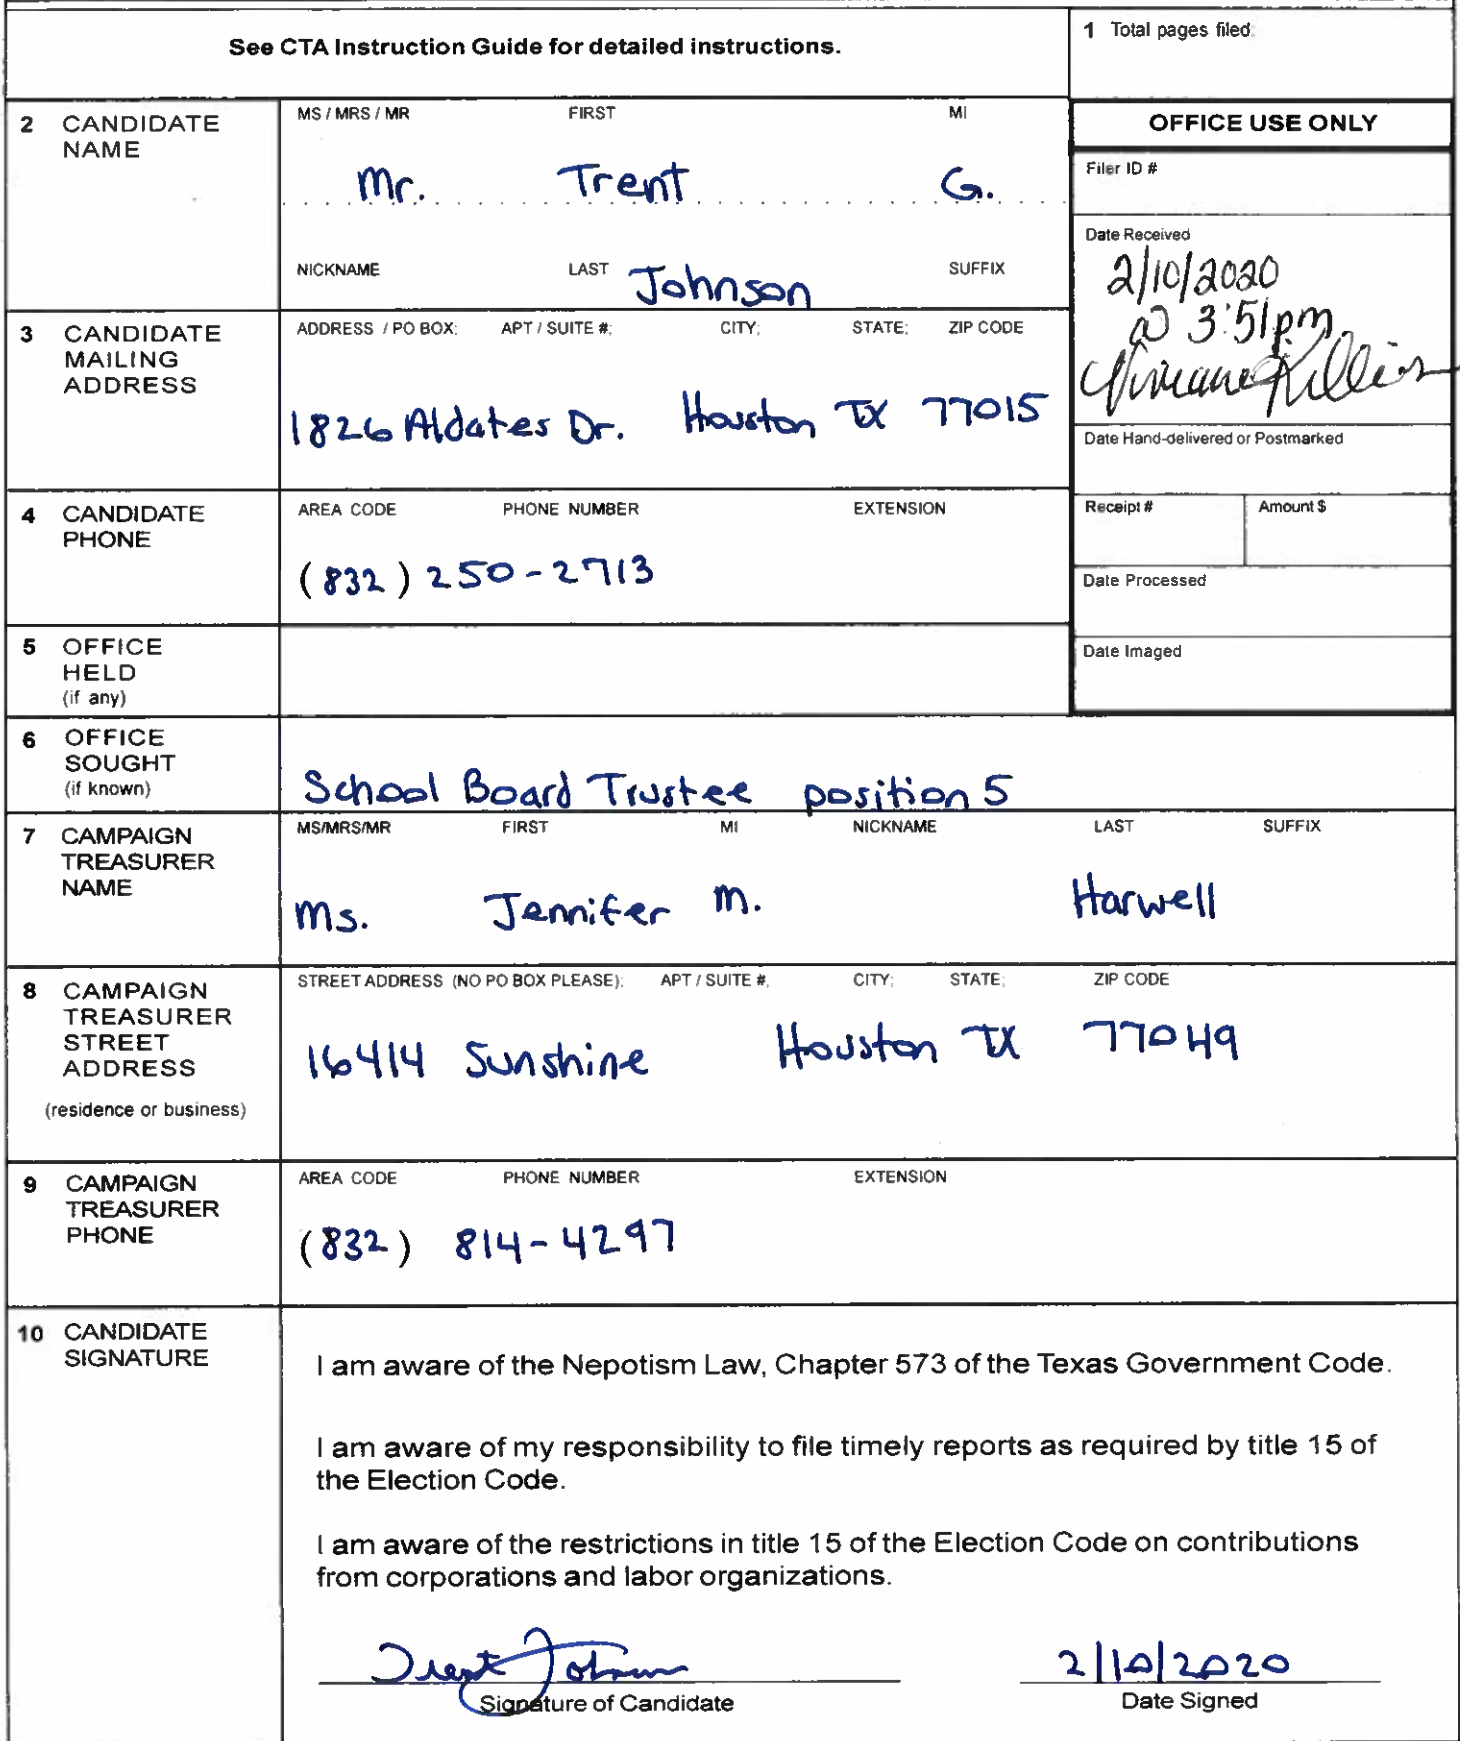 See CTA Instruction Guide for detailed instructions.
1 Total pages filed:
2 CANDIDATE NAME
MS / MRS / MR FIRST MI
Mr. Trent G.
NICKNAME LAST SUFFIX
Johnson
OFFICE USE ONLY
Filer ID #
Date Received
2/10/2020
@ 3:51pm
Date Hand-delivered or Postmarked
Receipt # Amount $
Date Processed
Date Imaged
3 CANDIDATE MAILING ADDRESS
ADDRESS / PO BOX; APT / SUITE #; CITY; STATE; ZIP CODE
1826 Aldates Dr. Houston TX 77015
4 CANDIDATE PHONE
AREA CODE PHONE NUMBER EXTENSION
(832) 250-2713
5 OFFICE HELD
(if any)
6 OFFICE SOUGHT
(if known)
School Board Trustee position 5
7 CAMPAIGN TREASURER NAME
MS/MRS/MR FIRST MI NICKNAME LAST SUFFIX
Ms. Jennifer M. Harwell
8 CAMPAIGN TREASURER STREET ADDRESS
(residence or business)
STREET ADDRESS (NO PO BOX PLEASE); APT / SUITE #; CITY; STATE; ZIP CODE
16414 Sunshine Houston TX 77049
9 CAMPAIGN TREASURER PHONE
AREA CODE PHONE NUMBER EXTENSION
(832) 814-4297
10 CANDIDATE SIGNATURE
I am aware of the Nepotism Law, Chapter 573 of the Texas Government Code.
I am aware of my responsibility to file timely reports as required by title 15 of
the Election Code.
I am aware of the restrictions in title 15 of the Election Code on contributions
from corporations and labor organizations.
Trent Johnson 2/10/2020
Signature of Candidate Date Signed